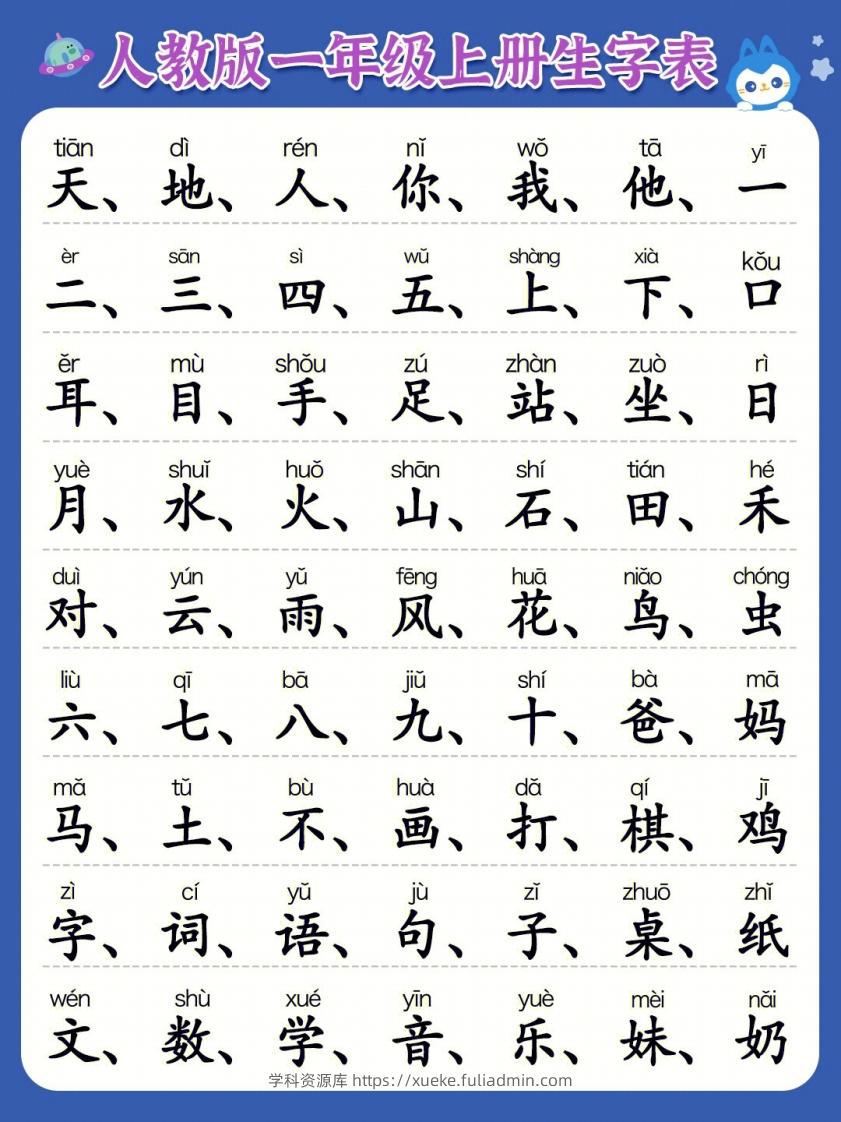 人教版一年级上册生字表
tiān dì rén nǐ wǒ tā yī
天、地、人、你、我、他、一
èr sān sì wǔ shàng xià kǒu
二、三、四、五、上、下、口
ěr mù shǒu zú zhàn zuò rì
耳、目、手、足、站、坐、日
yuè shuǐ huǒ shān shí tián hé
月、水、火、山、石、田、禾
duì yún yǔ fēng huā niǎo chóng
对、云、雨、风、花、鸟、虫
liù qī bā jiǔ shí bà mā
六、七、八、九、十、爸、妈
mǎ tǔ bù huà dǎ qí jī
马、土、不、画、打、棋、鸡
zì cí yǔ jù zǐ zhuō zhǐ
字、词、语、句、子、桌、纸
wén shù xué yīn yuè mèi nǎi
文、数、学、音、乐、妹、奶
学科资源库 https://xueke.fuliadmin.com